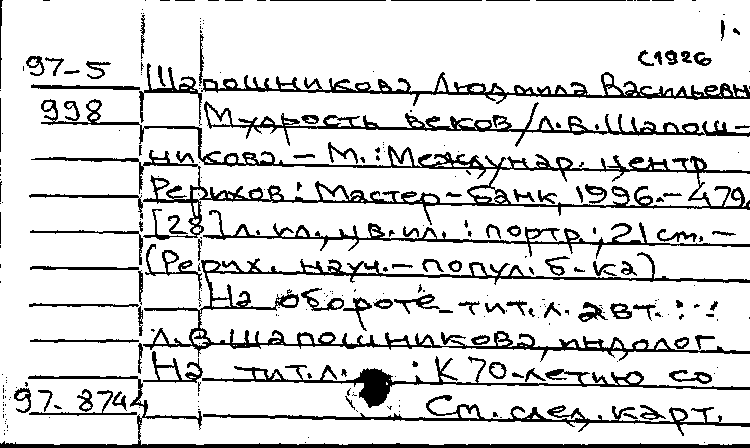 1.
с1926
97-5 Шапошникова, Людмила Васильевн
998 Мудрость веков/Л.В.Шапош-
никова.- М.: Междунар. центр
Рерихов: Мастер-Банк, 1996.- 479,
[28] л. ил., цв.ил. : портр.; 21 см.-
(Рерих. науч.-попул. б-ка).
На обороте тит.л. авт.:
Л.В.Шапошникова, индолог.
На тит.л. : К 70-летию со
97-8744 См. след. карт.